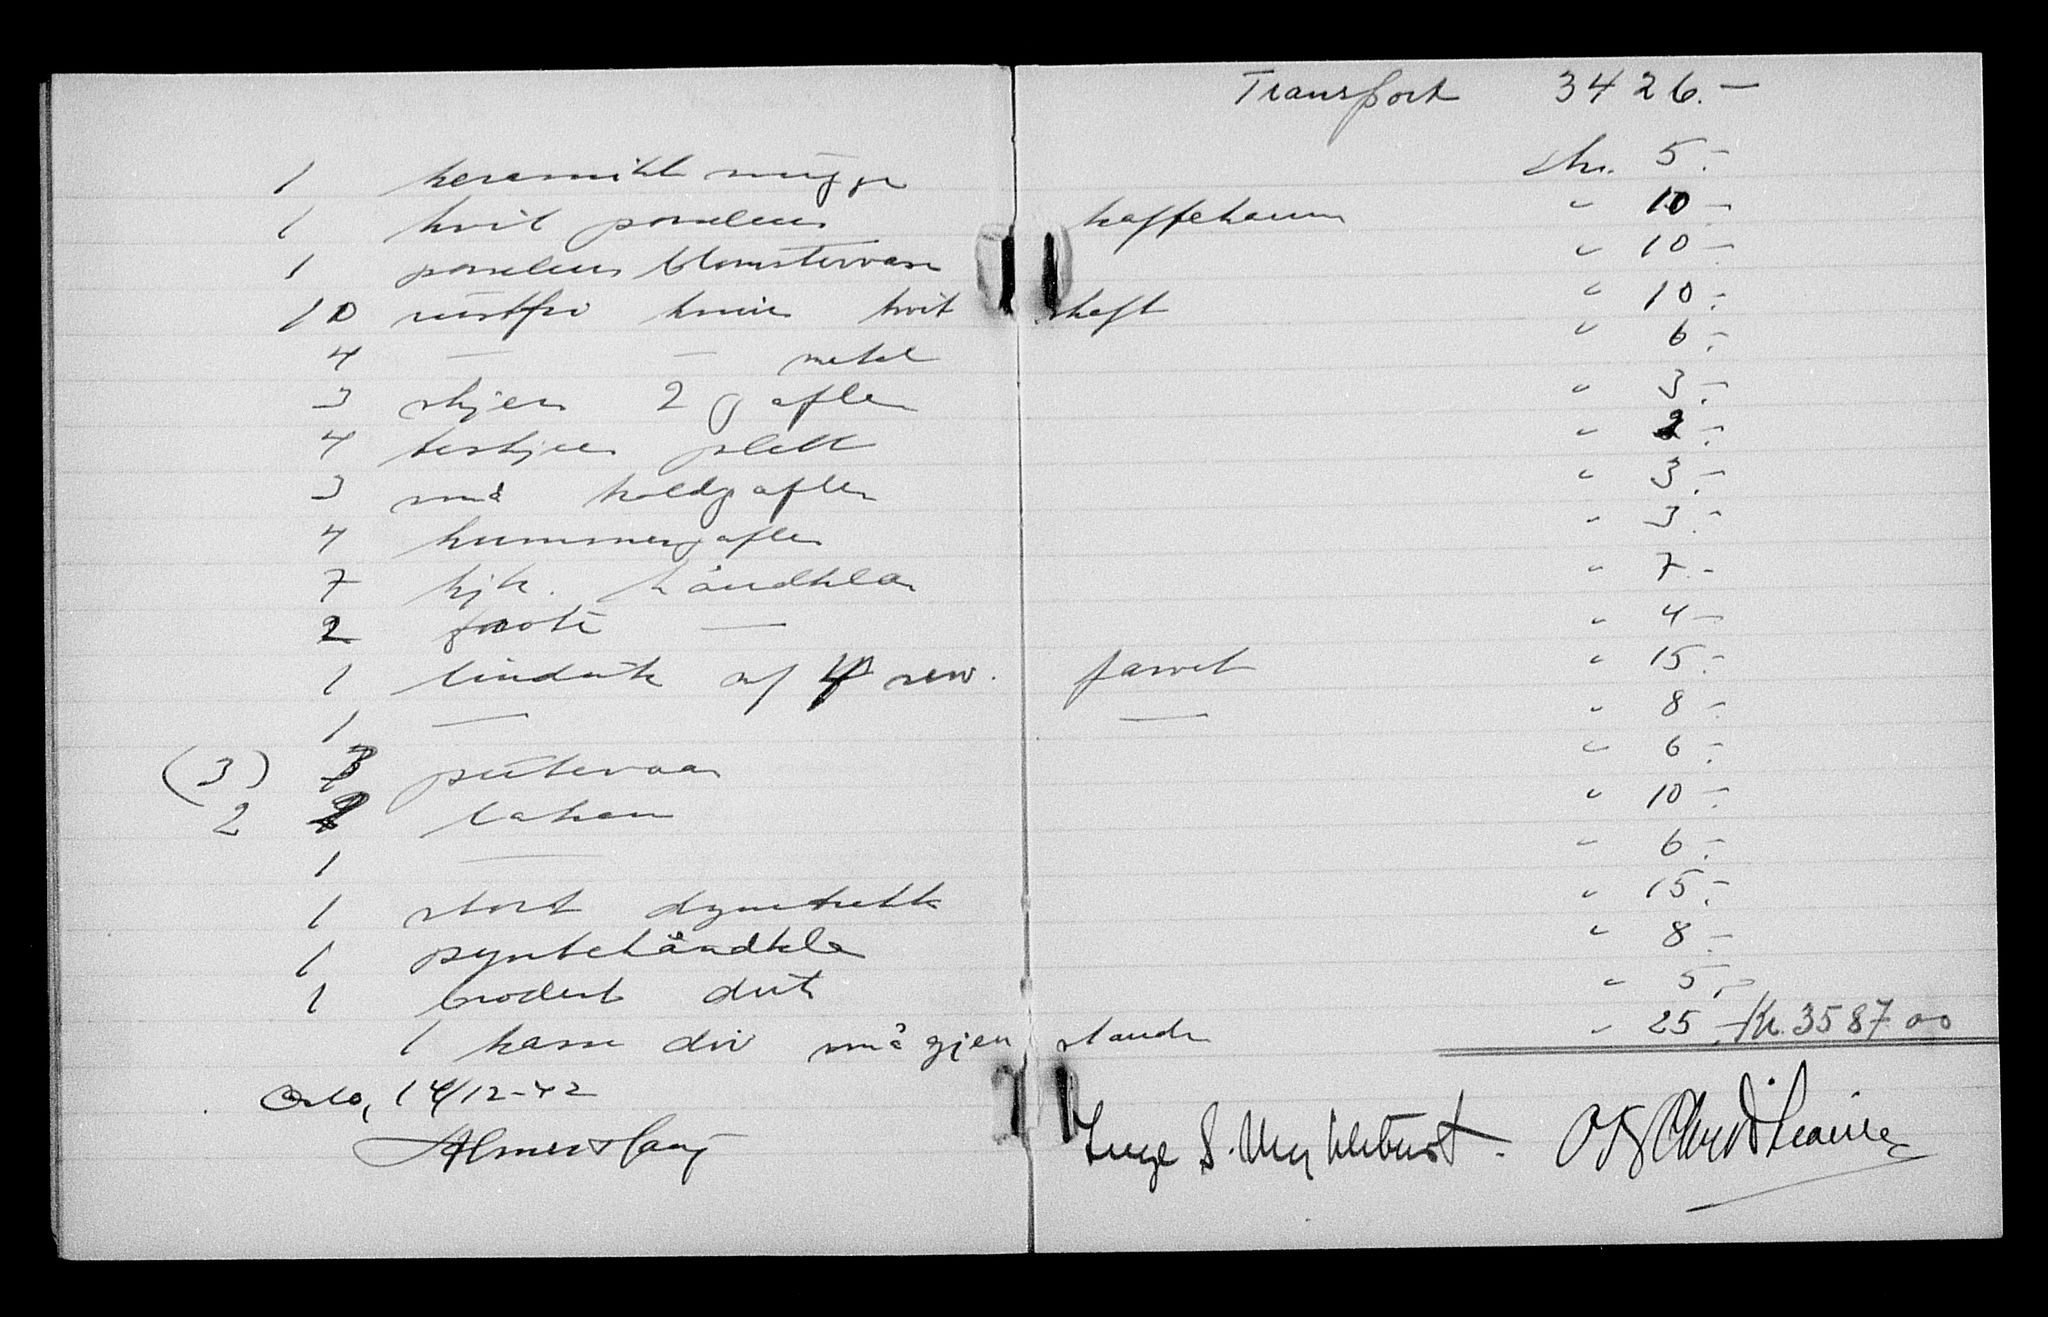 Transport 3426.-
1 keramikk mugge kr. 5.-
1 hvit porselens kaffekanne " 10 -
1 porselens blomstervase " 10.-
10 rustfri kniver hvit skaft " 10.-
4 — — metal " 6.-
3 skjeer 2 gafler " 3.-
4 teskjeer plett " 2.-
3 små koldgafler " 3.-
4 hummergafler " 3.-
7 kjk. håndklær " 7.-
2 frote — " 4 -
1 linduk m/ 4 serv. farvet " 15.-
1 — — " 8 -
(3) 3 putevaar " 6.-
2 2 laken " 10.-
1 — " 6.-
1 stort dynetrekk " 15.-
1 pyntehåndkle " 8.-
1 brodert duk " 5.-
1 kasse div små gjenstande " 25.- Kr. 3587 00
Oslo, 14/12-42
Inge S.